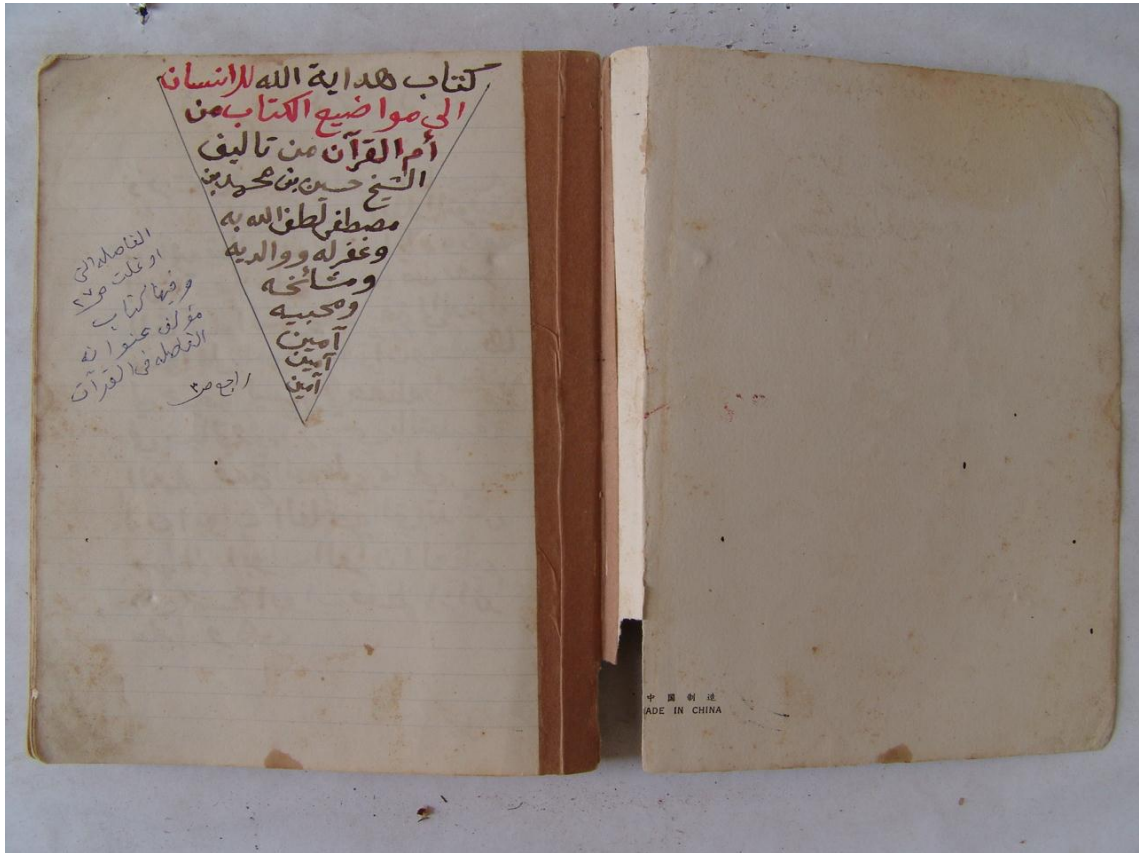 كتاب هداية الله للانسان
الى مواضيع الكتاب من
أم القرآن من تاليف
الشيخ حسين بن محمد بن
مصطفى لطف الله به
وغفر له ووالديه
ومشائخه
ومحبيه
آمين
آمين
آمين
الفاصله التي
او غلت ص٢٧
وفيها كتاب
مؤلف عنوانه
الفاصله في القرآن
راجع ص٣
中 国 制 造
ADE IN CHINA